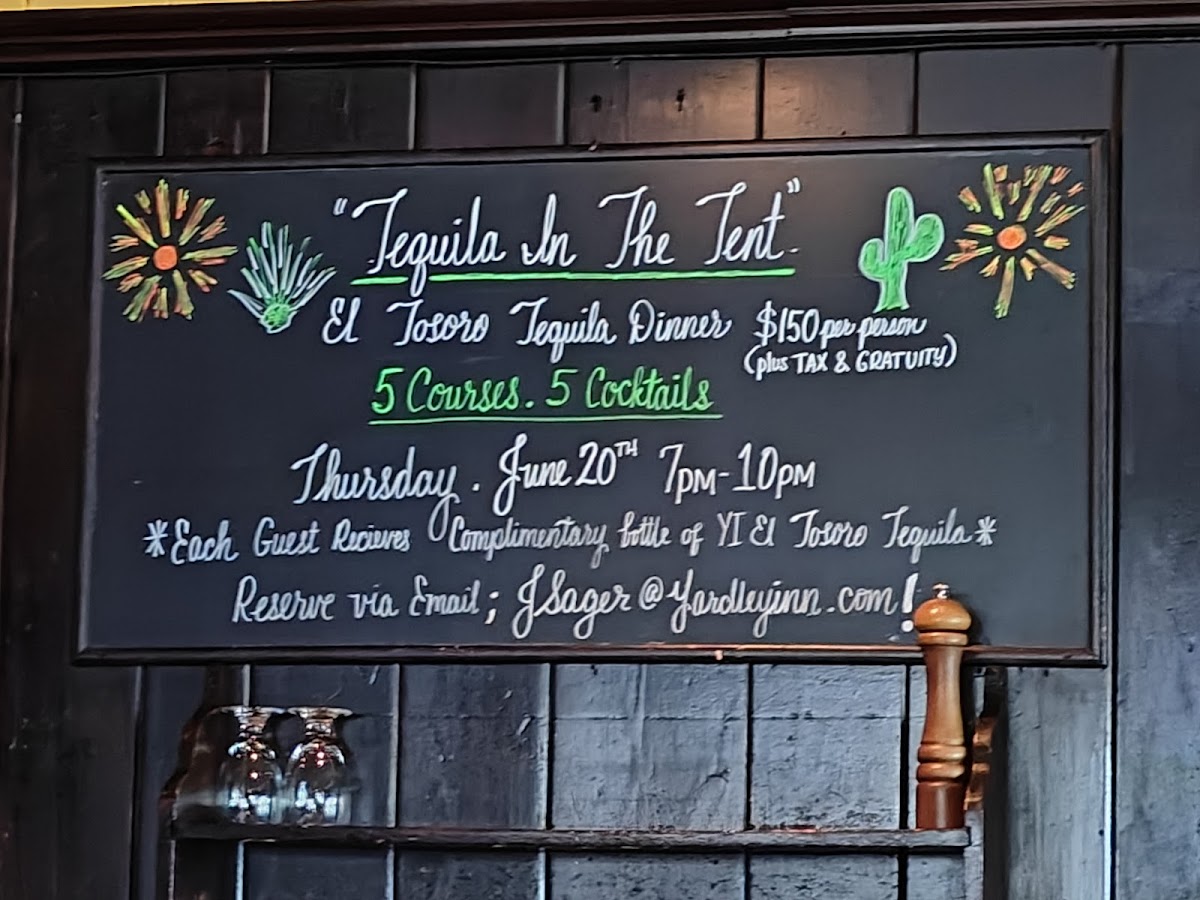 "Tequila In The Tent"
El Tosoro Tequila Dinner $150 per person
(plus TAX & GRATUITY)
5 Courses. 5 Cocktails
Thursday. June 20TH 7PM-10PM
*Each Guest Recieves Complimentary bottle of YI El Tosoro Tequila*
Reserve via Email; JSager@Yardleyinn.com!